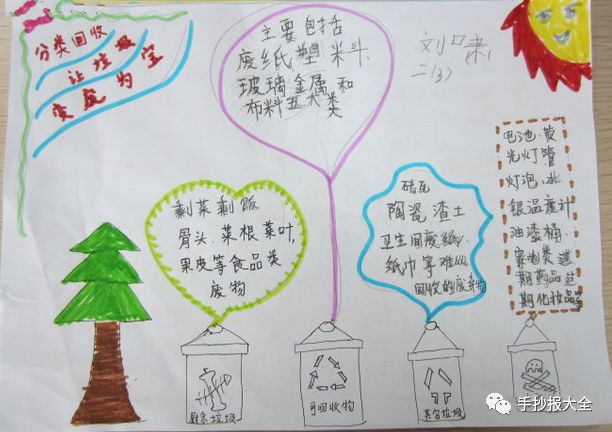 分类回收
让垃圾
变废为宝
主要包括
废纸塑料
玻璃金属和
布料五大类
二(3)
剩菜剩饭
骨头、菜根菜叶,
果皮等食品类
废物
砖瓦
陶瓷渣土
卫生间废纸、
纸巾等难以
回收的废弃物
电池、荧
光灯管
灯泡、水
银温度计
油漆桶、
家电类过
期药品过
期化妆品等
厨余垃圾
可回收物
其它垃圾
手抄报大全